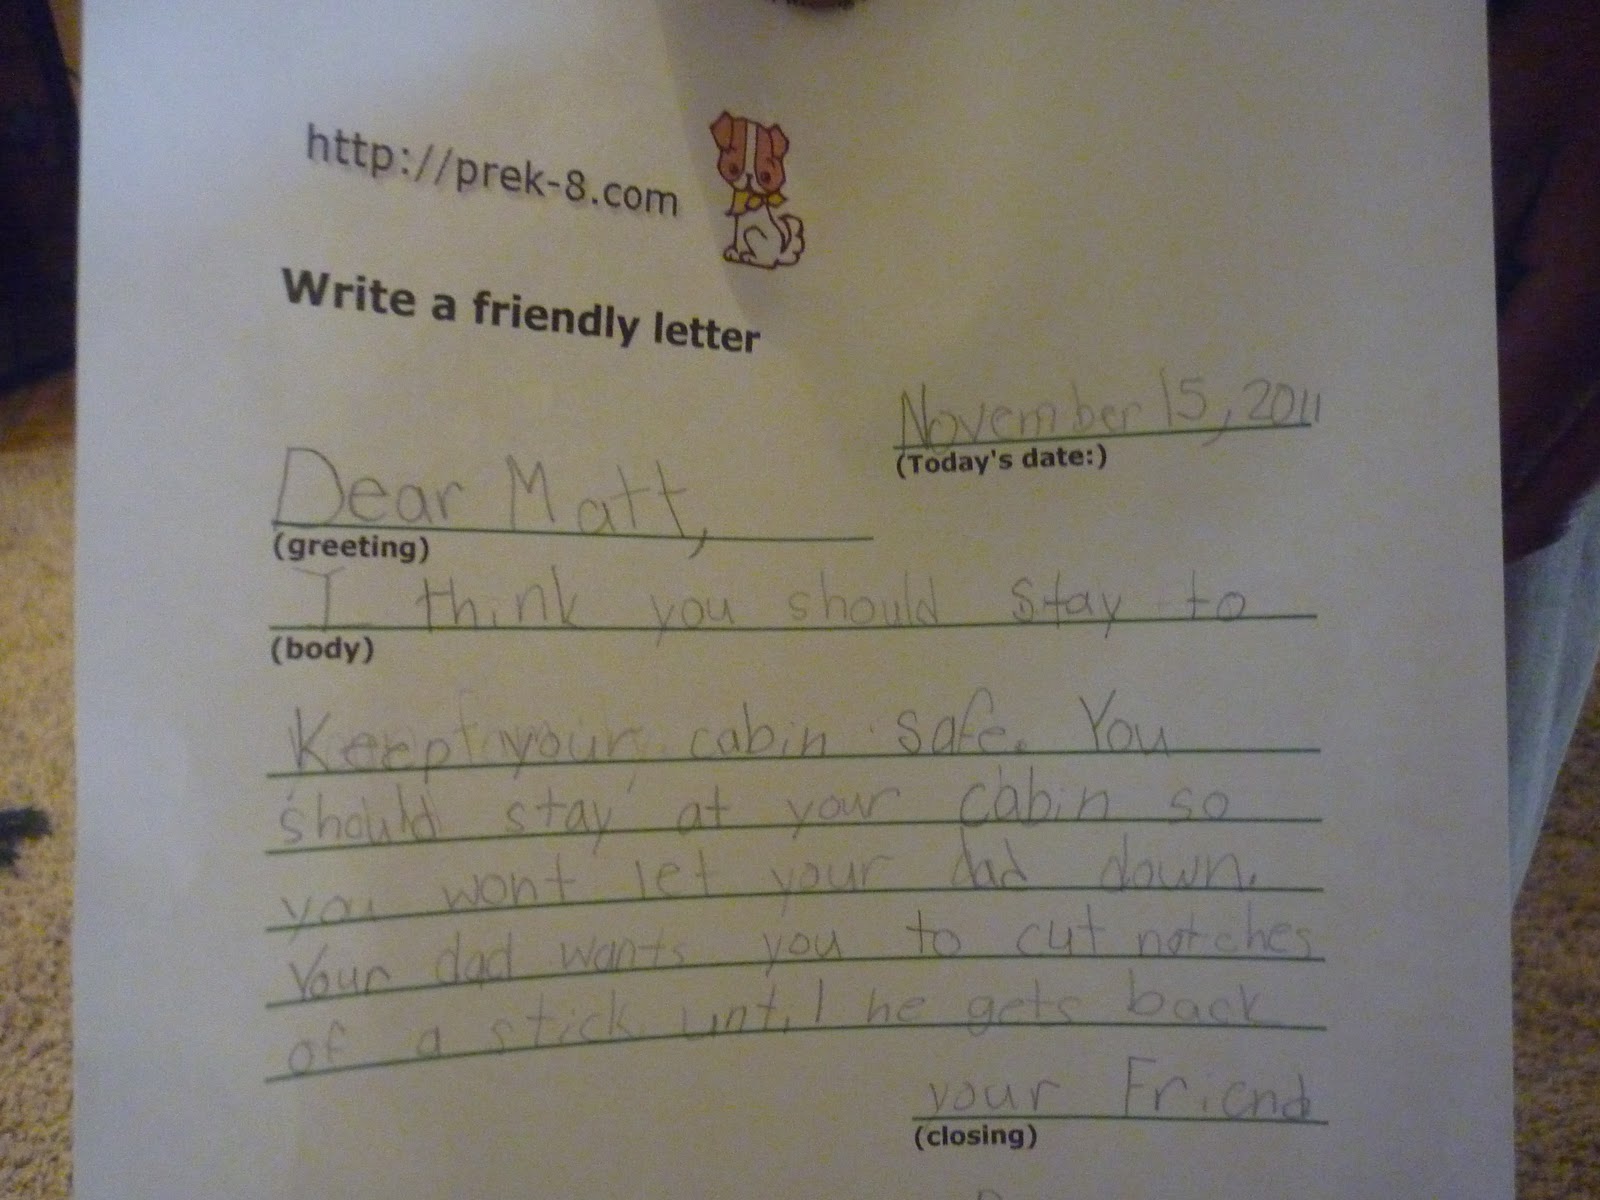 http://prek-8.com
Write a friendly letter
November 15, 2011
(Today's date:)
Dear Matt,
(greeting)
I think you should stay to
(body)
Keep your cabin safe. You
should stay at your cabin so
you wont let your dad down.
Your dad wants you to cut notches
of a stick until he gets back
your Friend
(closing)